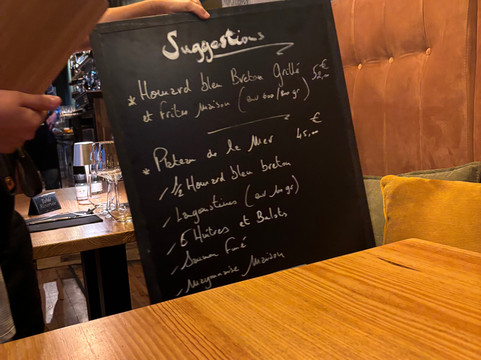 Suggestions
* Homard bleu Breton Grillé 52,- €
et Frites maison (
* Plateau de la Mer 45,- €
/ 1/2 Homard bleu breton
/ Langoustines (
/ 6 Huîtres et Bulots
/ Saumon Fumé
/ Mayonnaise Maison